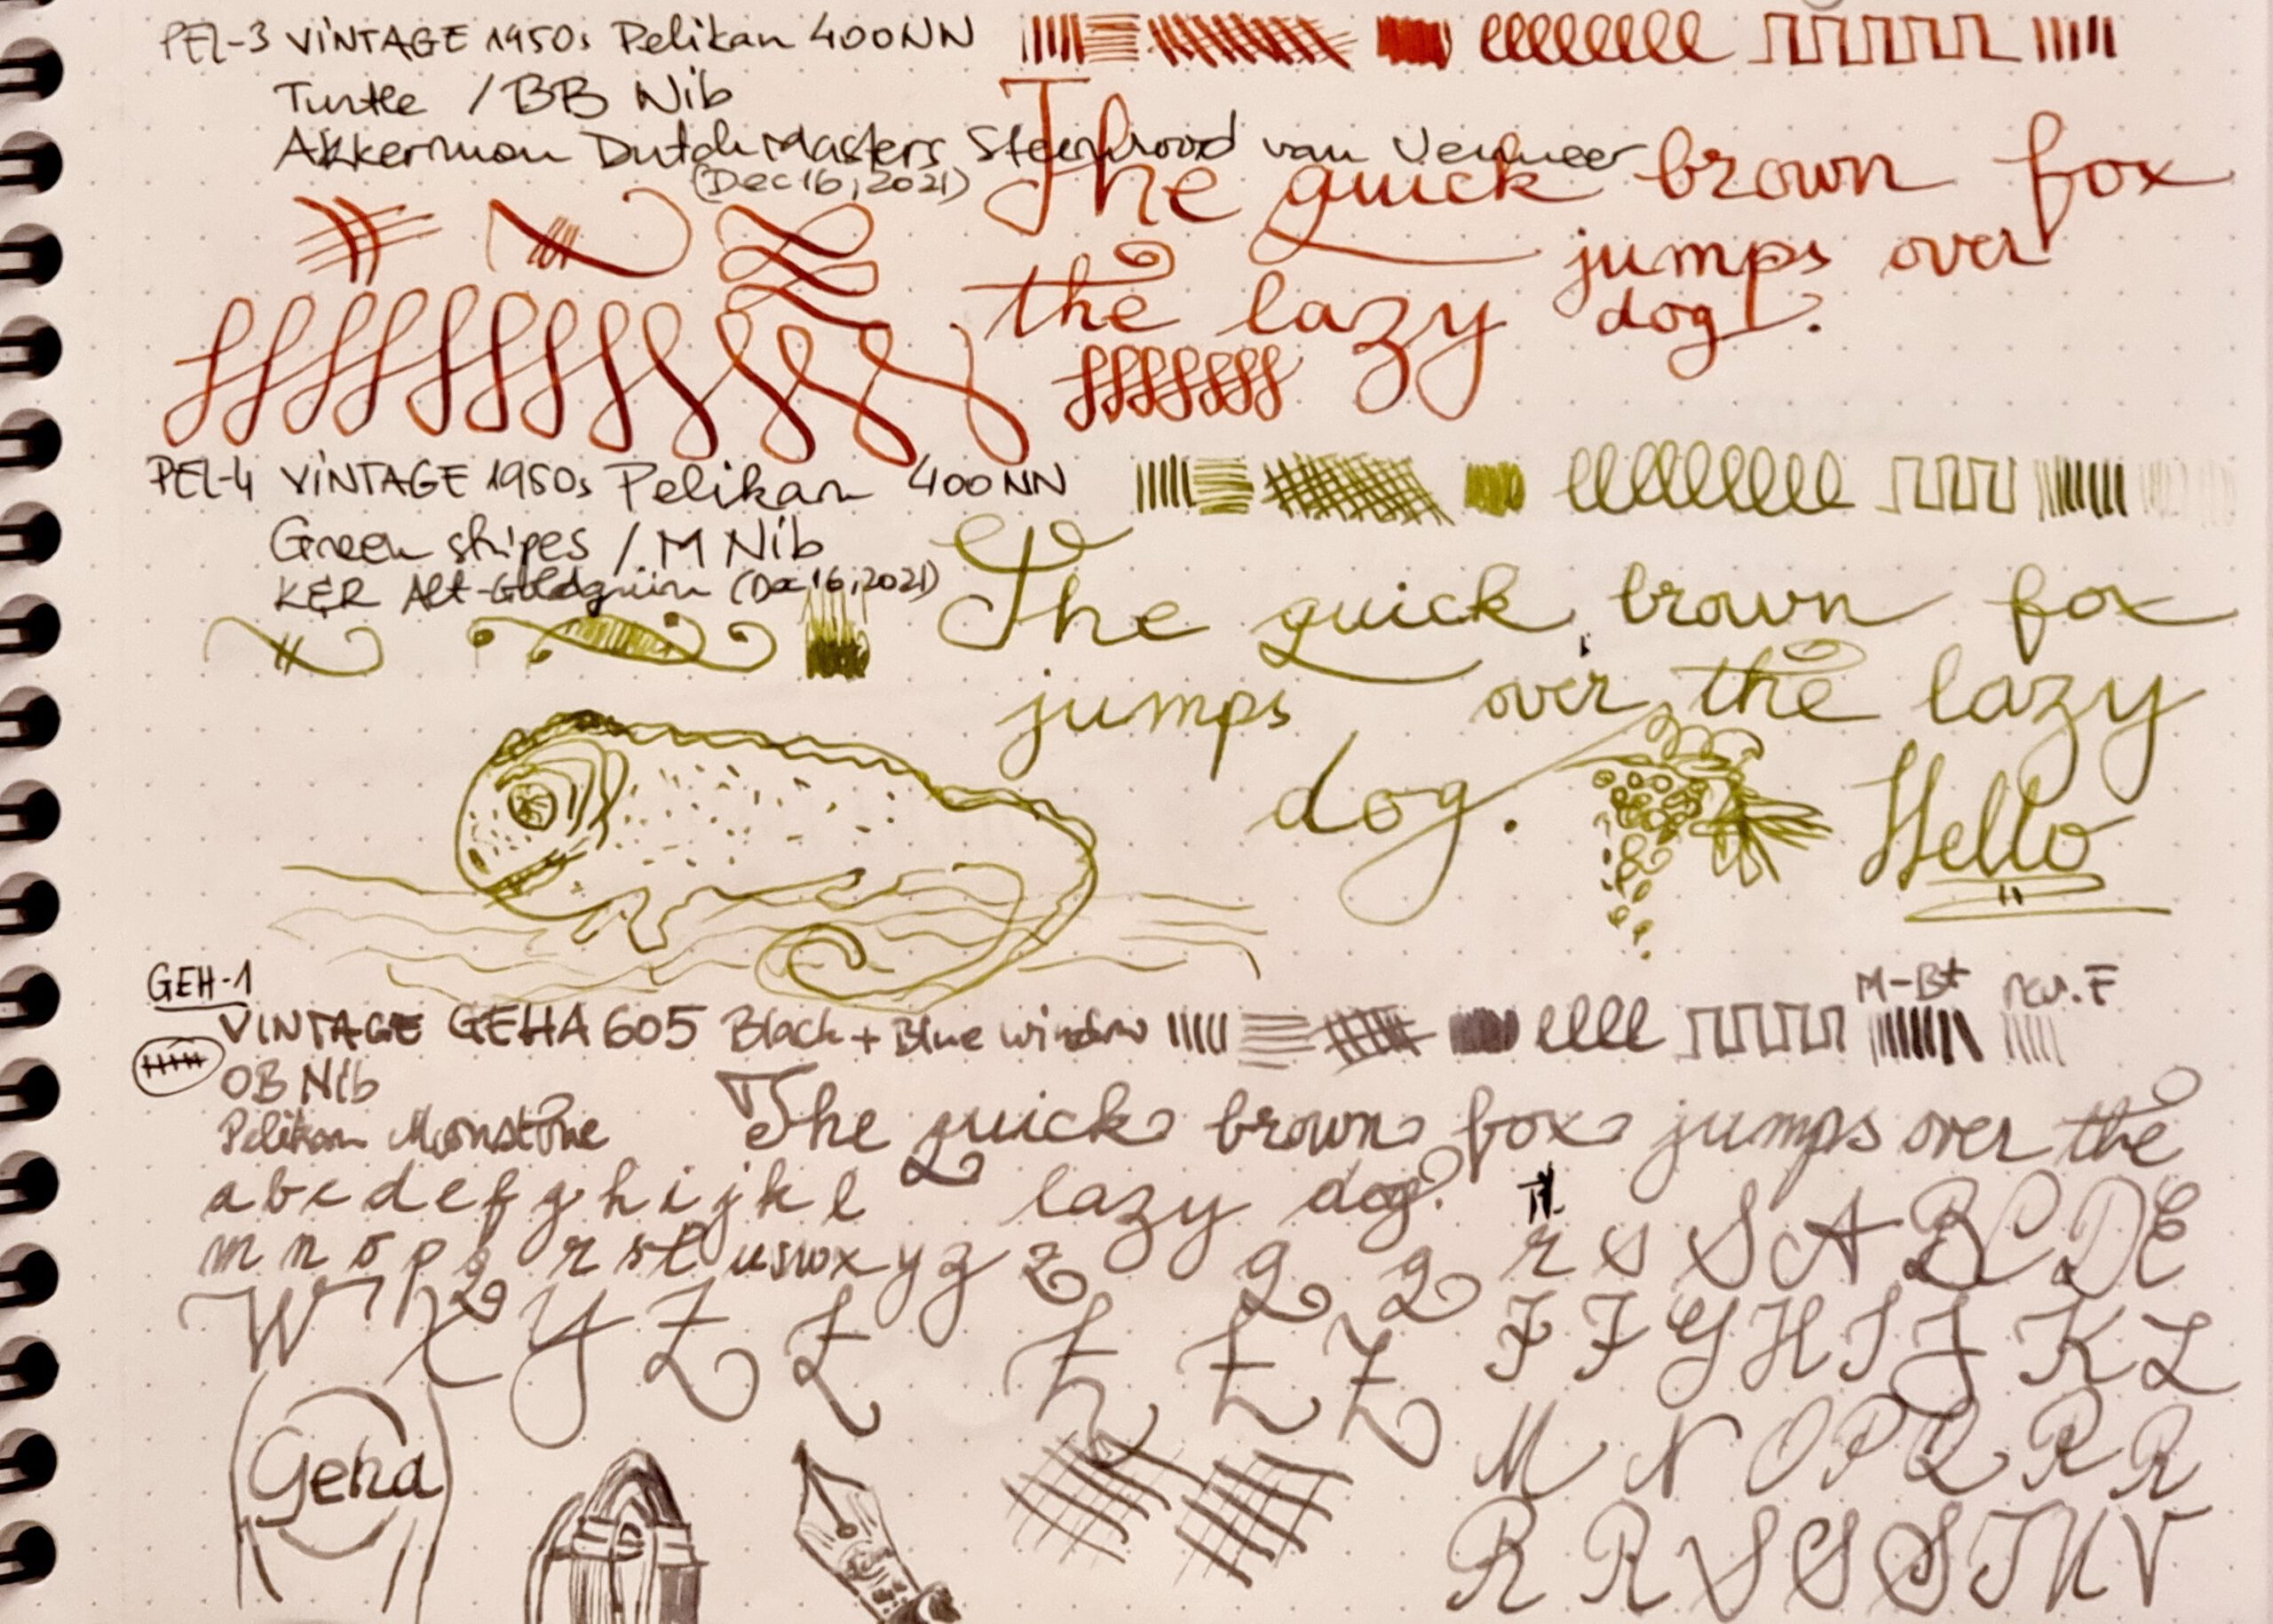 PEL-3 VINTAGE 1950s Pelikan 400NN
Turtle / BB Nib
Akkerman Dutch Masters Steenrood van Vermeer
(Dec 16, 2021)
The quick brown fox
jumps over
the lazy dog.
PEL-4 VINTAGE 1950s Pelikan 400NN
Green stripes / M Nib
K&R Alt-Goldgrün (Dec 16, 2021)
The quick brown fox
jumps over the lazy
dog.
Hello
GEH-1
M-B+ rev. F
VINTAGE GEHA 605 Black + Blue window
OB Nib
Pelikan Moonstone
The quick brown fox jumps over the
lazy dog.
a b c d e f g h i j k l
m n o p q r s t u v w x y z z q q r s S A B C D E
W X Y Z Z Z Z Z F F G H I J K L
M N O P Q R R
R R S S S T U V
Geha